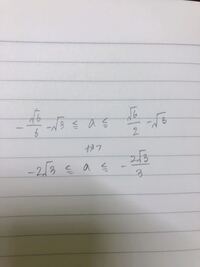 -√6/6 -√3 ≦ a ≦ √6/2 -√3
かつ
-2√3 ≦ a ≦ -2√3/3